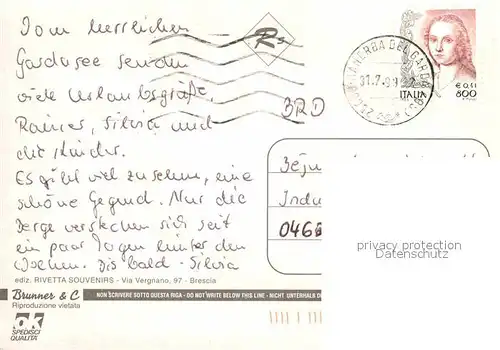 Vom herrlichen
Gardasee senden
viele Urlaubsgrüße
Rainer, Silvia und
die Kinder.
Es gibt viel zu sehen, eine
schöne Gegend. Nur die
Berge verstecken sich seit
ein paar Tagen hinter den
Wolken. Bis bald - Silvia
ediz. RIVETTA SOUVENIRS - Via Vergnano, 97 - Brescia
Brunner & C
Riproduzione vietata
NON SCRIVERE SOTTO QUESTA RIGA - DO NOT WRITE BELOW THIS LINE - NICHT UNTERHALB D
ok
SPEDISCI
QUALITÀ
Rs
BRD
MANERBA DEL GARDA
31.7.99
ITALIA
€ 0,41
800
Indu
0466
privacy protection
Datenschutz